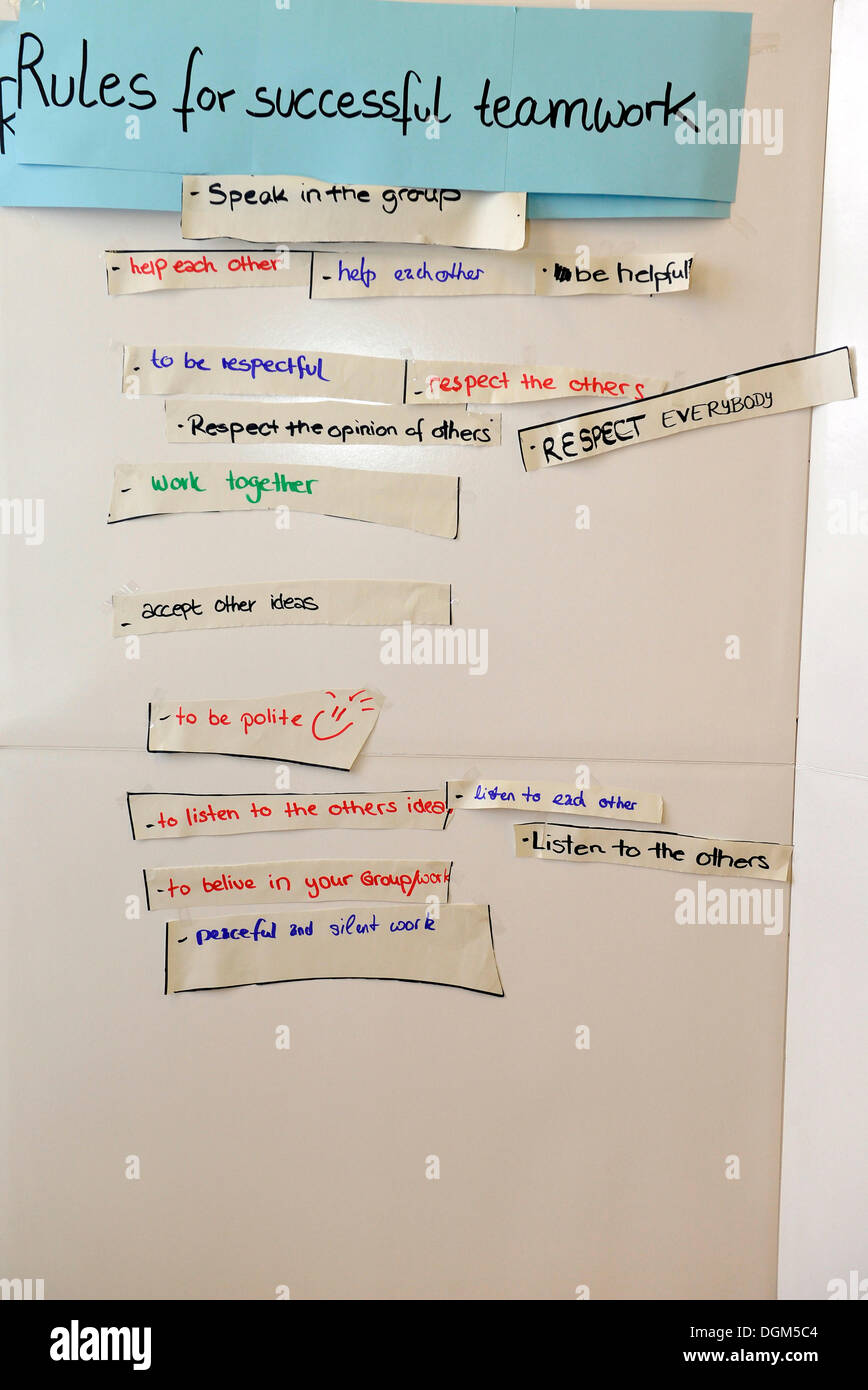 Rules for successful teamwork
- Speak in the group
- help each other
- help each other
· be helpful
- to be respectful
- respect the others
· Respect the opinion of others
· RESPECT EVERYBODY
- work together
- accept other ideas
- to be polite
- to listen to the others idea
- listen to each other
· Listen to the others
- to belive in your Group/work
- peaceful and silent work
alamy
alamy
Image ID: DGM5C4
www.alamy.com